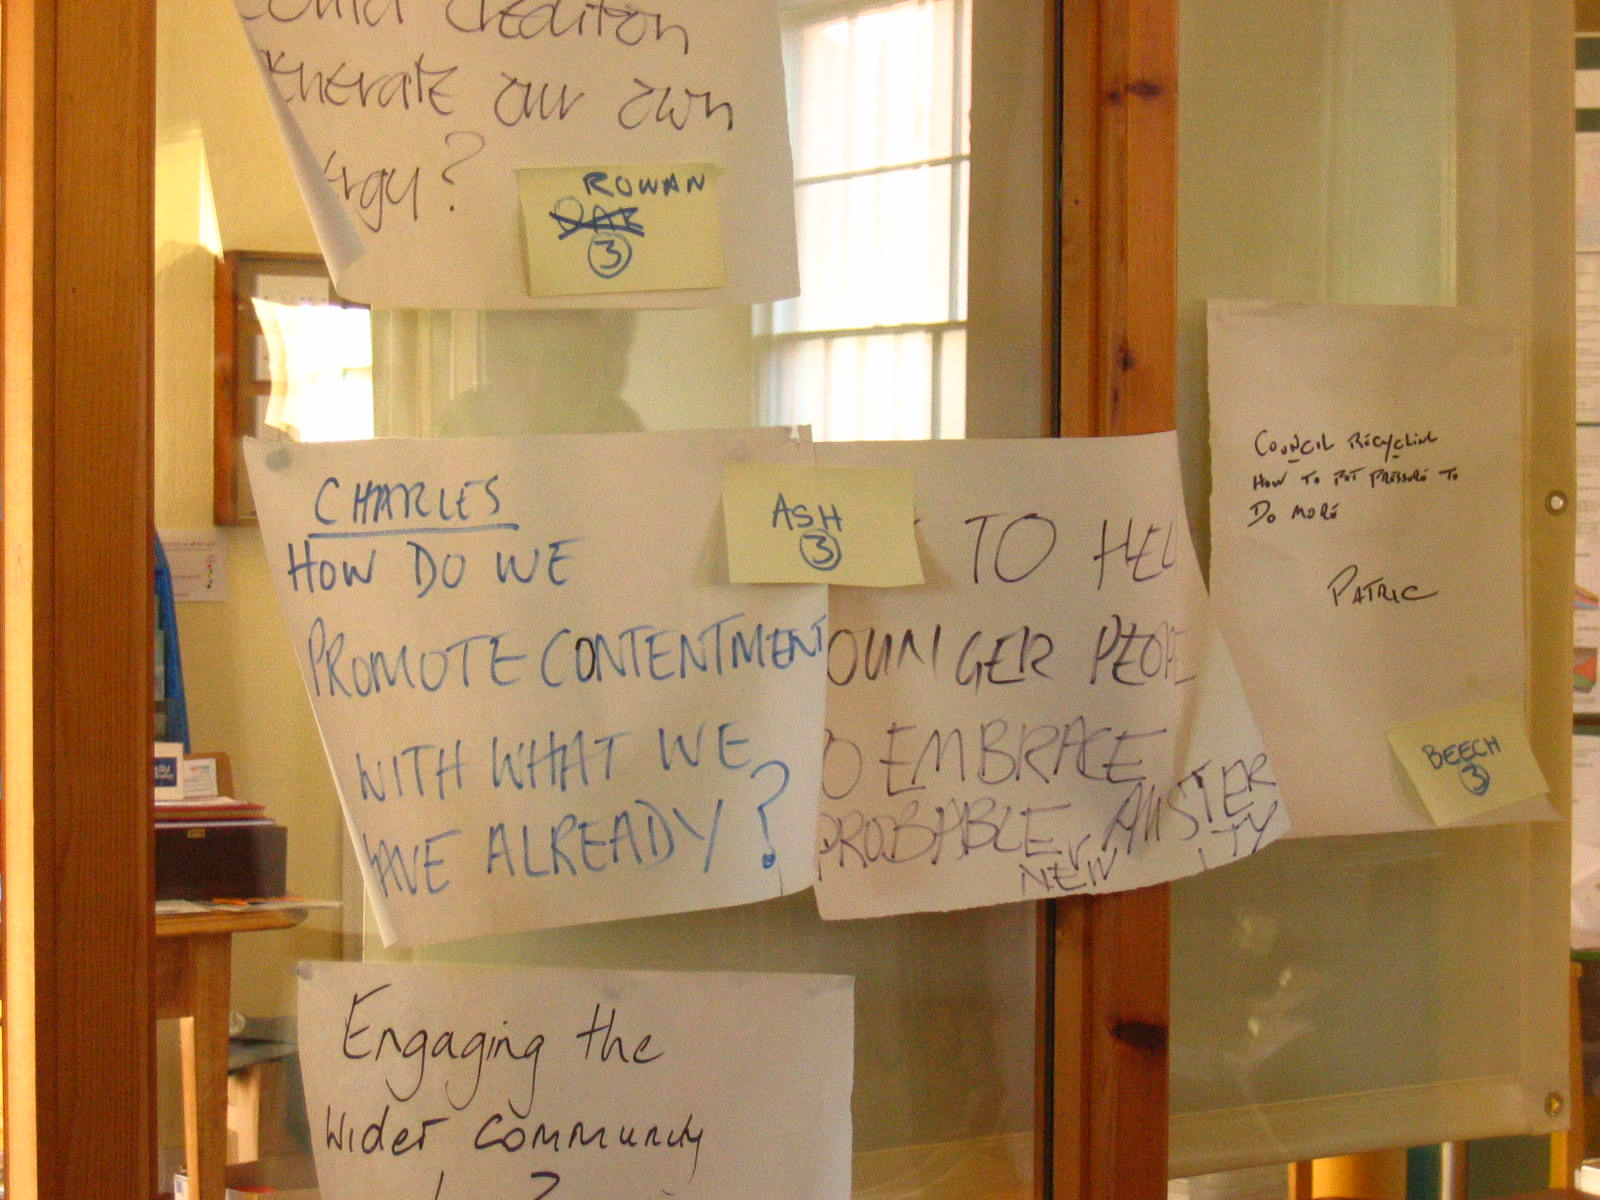 Crediton
our own
?
ROWAN
OAK
3
CHARLES
HOW DO WE
PROMOTE CONTENTMENT
WITH WHAT WE
HAVE ALREADY?
ASH
3
TO HEL
OUNGER PEOPLE
O EMBRACE
PROBABLE, AUSTER
NEW ITY
COUNCIL RECYCLING
HOW TO PUT PRESSURE TO
DO MORE
PATRIC
BEECH
3
Engaging the
Wider Community